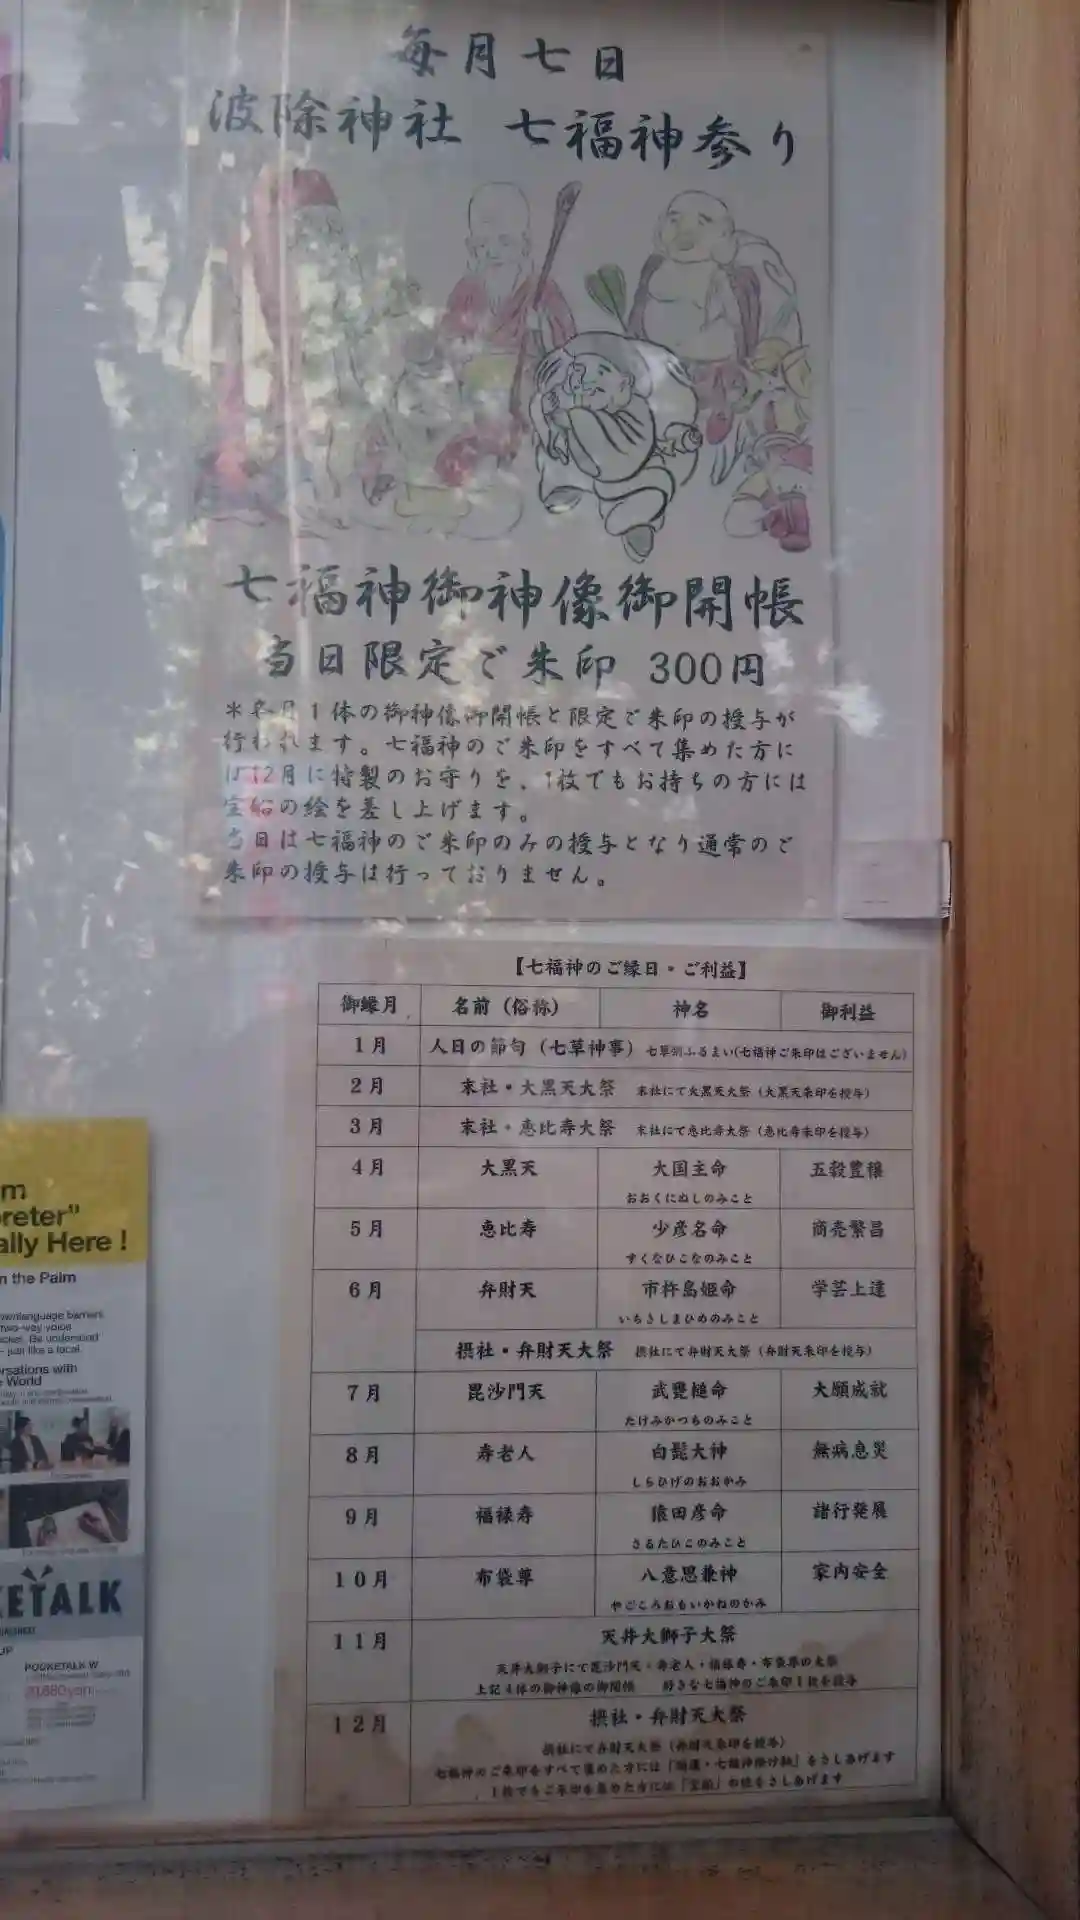 毎月七日
波除神社 七福神参り
七福神御神像御開帳
当日限定ご朱印 300円
*各月1体の御神像御開帳と限定ご朱印の授与が
行われます。七福神のご朱印をすべて集めた方に
は12月に特製のお守りを、1枚でもお持ちの方には
宝船の絵を差し上げます。
当日は七福神のご朱印のみの授与となり通常のご
朱印の授与は行っておりません。
【七福神のご縁日・ご利益】
御縁月 名前(俗称) 神名 御利益
1月 人日の節句(七草神事) 七草粥ふるまい(七福神ご朱印はございません)
2月 末社・大黒天大祭 末社にて大黒天大祭(大黒天朱印を授与)
3月 末社・恵比寿大祭 末社にて恵比寿大祭(恵比寿朱印を授与)
4月 大黒天 大国主命 五穀豊穣
おおくにぬしのみこと
5月 恵比寿 少彦名命 商売繁昌
すくなひこなのみこと
6月 弁財天 市杵島姫命 学芸上達
いちきしまひめのみこと
摂社・弁財天大祭 摂社にて弁財天大祭(弁財天朱印を授与)
7月 毘沙門天 武甕槌命 大願成就
たけみかつちのみこと
8月 寿老人 白髭大神 無病息災
しらひげのおおかみ
9月 福禄寿 猿田彦命 諸行発展
さるたひこのみこと
10月 布袋尊 八意思兼神 家内安全
やごころおもいかねのかみ
11月 天井大獅子大祭
天井大獅子にて毘沙門天・寿老人・福禄寿・布袋尊の大祭
上記4体の御神像の御開帳 好きな七福神のご朱印1枚を授与
12月 摂社・弁財天大祭
摂社にて弁財天大祭(弁財天朱印を授与)
七福神のご朱印をすべて集めた方には「開運・七福神掛け軸」をさしあげます
1枚でもご朱印を集めた方には「宝船」の絵をさしあげます
m
reter"
ally Here !
n the Palm
down language barriers
two-way voice
ocket. Be understood
- just like a local.
rsations with
World
KETALK
UP
POCKETALK W